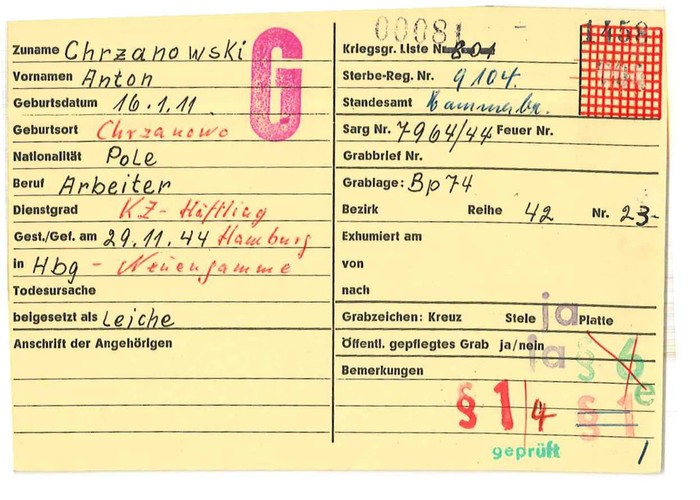 Zuname Chrzanowski
Vornamen Anton
Geburtsdatum 16.1.11
Geburtsort Chrzanowo
Nationalität Pole
Beruf Arbeiter
Dienstgrad KZ-Häftling
Gest./Gef. am 29.11.44 Hamburg
in Hbg - Neuengamme
Todesursache
beigesetzt als Leiche
Anschrift der Angehörigen
G
00081 1458
Kriegsgr. Liste Nr. 801
Sterbe-Reg. Nr. 9104.
Standesamt
Sarg Nr. 7964/44 Feuer Nr.
Grabbrief Nr.
Grablage: Bp 74
Bezirk Reihe 42 Nr. 23-
Exhumiert am
von
nach
Grabzeichen: Kreuz Stele ja Platte
Öffentl. gepflegtes Grab ja/nein ja § 6
Bemerkungen e
§ 1/4 § 1
geprüft 1